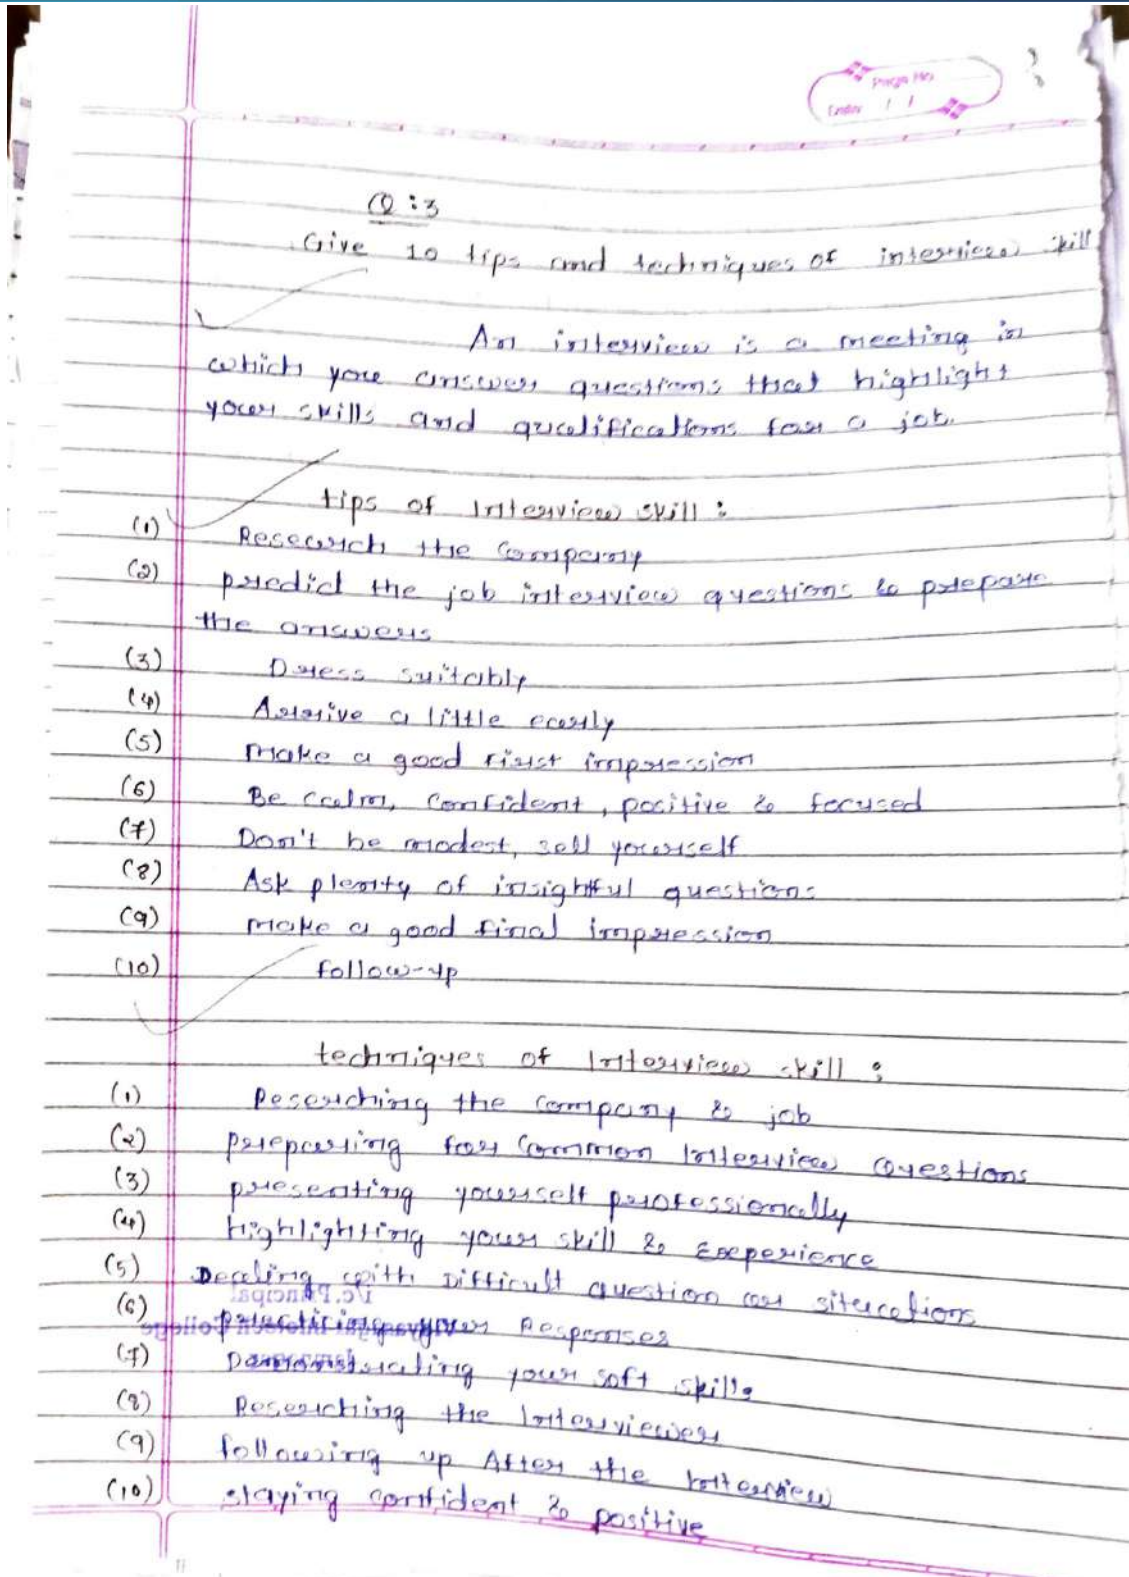 Page No.
Date / /
Q:3
Give 10 tips and techniques of interview skill
An interview is a meeting in
which you answer questions that highlight
your skills and qualifications for a job.
tips of Interview skill :
(1) Research the Company
(2) predict the job interview questions & prepare
the answers
(3) Dress suitably
(4) Arrive a little early
(5) make a good first impression
(6) Be calm, confident, positive & focused
(7) Don't be modest, sell yourself
(8) Ask plenty of insightful questions
(9) make a good final impression
(10) follow-up
techniques of Interview skill :
(1) Reserching the company & job
(2) preparing for Common Interview Questions
(3) presenting yourself professionally
(4) highlighting your skill & Experience
(5) Dealing with Difficult question or situations
I/c. Principal
(6) practicing your Responses
Infotech College
(7) Demonstrating your soft skills
(8) Reserching the Interviewer
(9) following up After the Interview
(10) staying confident & positive